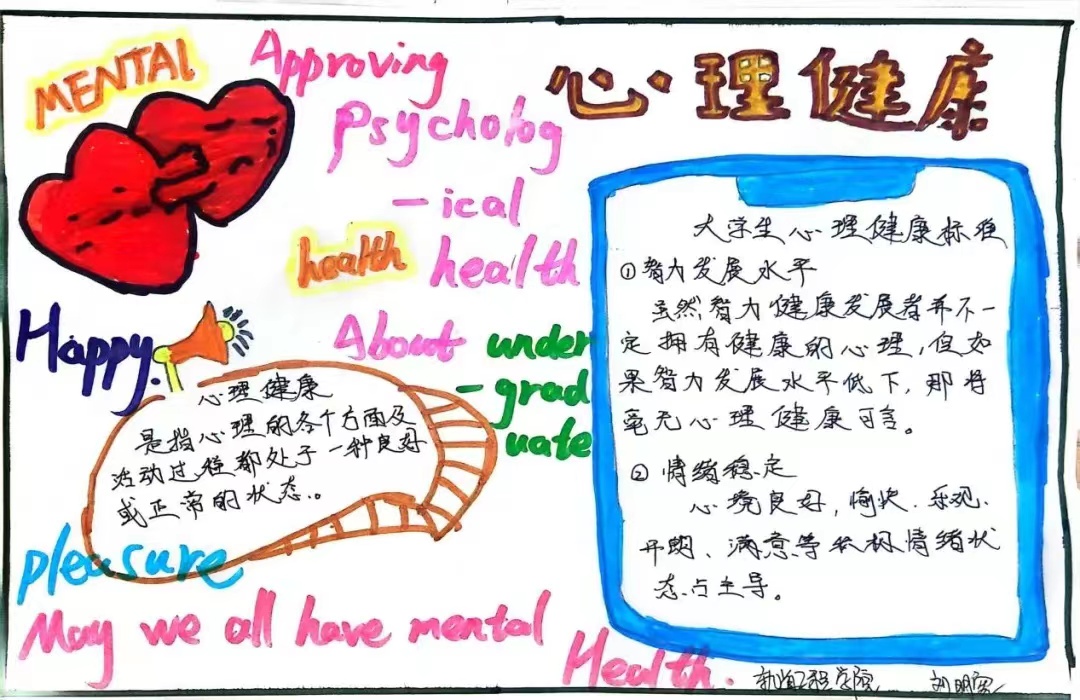 MENTAL
Approving
Psycholog
-ical
health health
Happy.
About under
-grad
uate
心理健康
是指心理的各个方面及
活动过程都处于一种良好
或正常的状态。
pleasure
May we all have mental
Health.
心理健康
大学生心理健康标准
①智力发展水平
虽然智力健康发展者并不一
定拥有健康的心理,但如
果智力发展水平低下,那将
毫无心理健康可言。
② 情绪稳定
心境良好,愉快、乐观、
开朗、满意等积极情绪状
态占主导。
工程学院
刘明